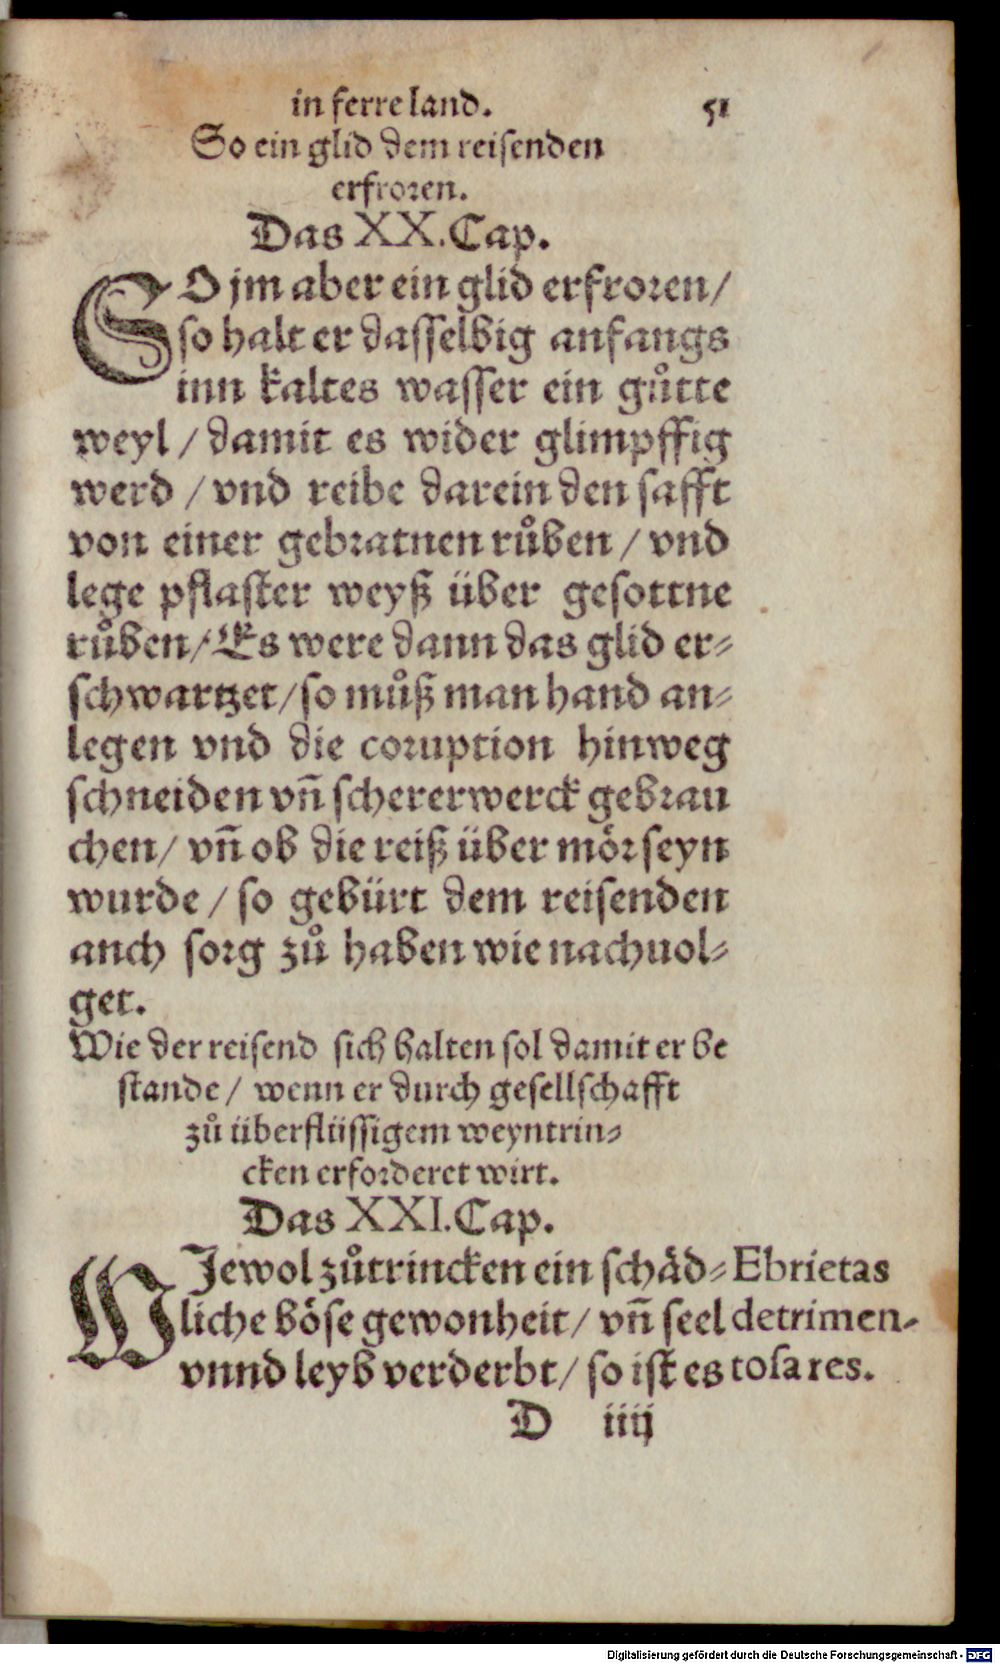 in ferre land. 51
So ein glid dem reisenden
erfroren.
Das XX. Cap.
SO jm aber ein glid erfroren/
so halt er dasselbig anfangs
inn kaltes wasser ein gůtte
weyl / damit es wider glimpffig
werd / vnd reibe darein den safft
von einer gebratnen růben / vnd
lege pflaster weyß über gesottne
růben/ Es were dann das glid er-
schwartzet/ so můß man hand an-
legen vnd die coruption hinweg
schneiden vñ schererwerck gebrau
chen/ vñ ob die reiß über mör seyn
wurde / so gebürt dem reisenden
anch sorg zů haben wie nachuol-
get.
Wie der reisend sich halten sol damit er be
stande / wenn er durch gesellschafft
zů überflüssigem weyntrin-
cken erforderet wirt.
Das XXI. Cap.
WJewol zůtrincken ein schäd- Ebrietas
liche böse gewonheit / vñ seel detrimen-
vnnd leyb verderbt/ so ist es tosa res.
D iiij
Digitalisierung gefördert durch die Deutsche Forschungsgemeinschaft - DFG